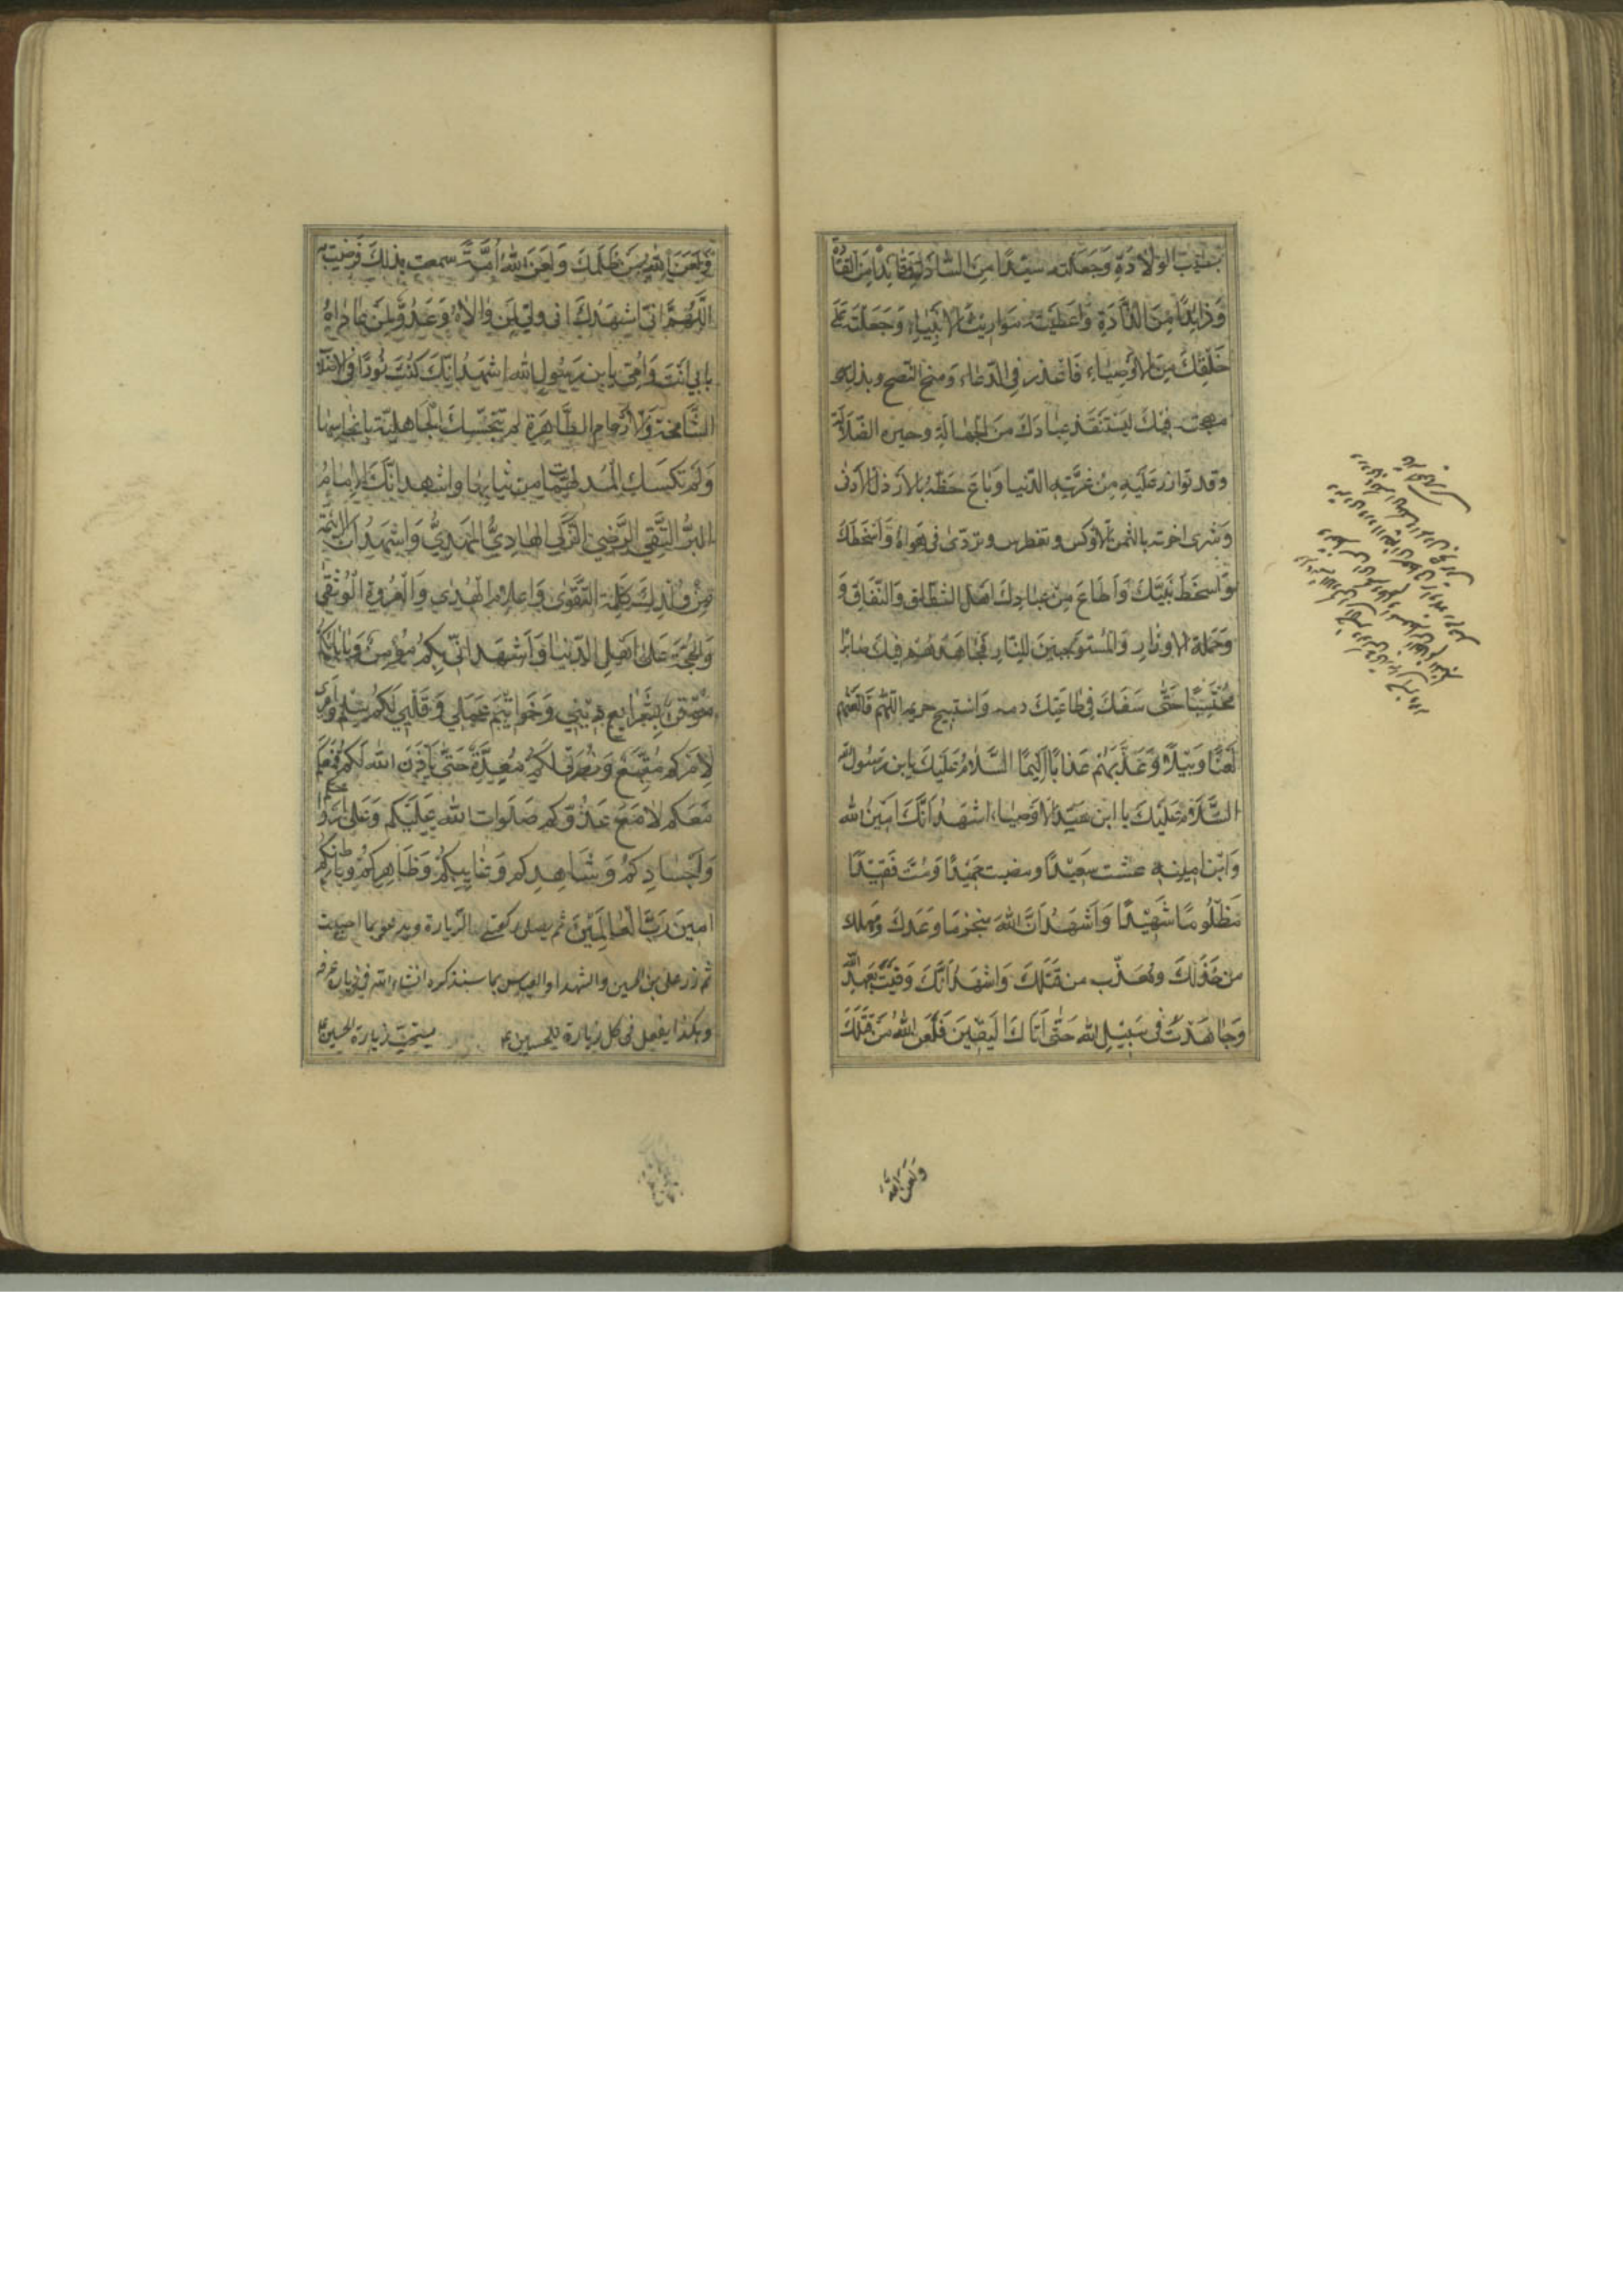 بطيب الولادة وجعلته سيّدًا من السّادة وقائدًا من القادة
وَذائِدًا مِنَ الذَّادَةِ وَاَعطَيتَهُ مَوارِيثَ الاَنبِياءِ وَجَعَلتَهُ حُجَّةً عَلى
خَلقِكَ مِنَ الاَوصِياءِ فَاَعذَرَ فِي الدّعاءِ وَمنح النّصح وبذل
مهجته فيك ليستنقذ عبادك من الجهالة وحيرة الضّلالة
وقد توازر عَليهِ مَن غَرَّتهُ الدّنيا وَباعَ حَظّهُ بالاَرذلِ الاَدنى
وَشرى اخرته بالثّمن الاَوكس وتغطرس وتردّى فى هَواهُ وَاَسخَطَكَ
وَاَسخَطَ نَبِيَّكَ وَاَطاعَ مِن عِبادِكَ اَهلَ الشّقاقِ وَالنِّفاقِ وَ
وَحَمَلَة الاوزارِ والمُستَوجِبينَ للنّارِ فَجاهَدَهُم فيكَ صابِرًا
مُحتَسِبًا حَتّى سُفِكَ فى طاعَتِكَ دمه وَاستُبيحَ حريمه اللّهمّ فَالعَنهُم
لَعنًا وَبيلاً وَعَذِّبهُم عَذابًا اَليمًا السَّلامُ عَلَيكَ يا بن رَسُولِ الله
السَّلامُ عَلَيكَ يا ابن سَيّدِ الاوصِياء اَشهَدُ اَنَّكَ اَمينُ الله
وَابنُ امينه عشت سَعيدًا ومضيت حَميدًا وَمُتَّ فَقيدًا
مَظلُومًا شَهيدًا وَاَشهَدُ اَنَّ اللهَ منجز ما وَعَدَكَ وَمُهلك
من خَذَلَكَ وَمُعَذّب من قَتَلَكَ وَاَشهَدُ اَنَّكَ وَفَيتَ بِعَهدِ الله
وَجاهَدتَ فى سَبيلِ الله حَتّى اَتاكَ اليَقينُ فَلَعَنَ اللهُ مَن قَتَلَكَ
وَلَعَنَ اللهُ
وَلَعَنَ اللهُ مَن ظَلَمَكَ وَلَعَنَ اللهُ اُمَّةً سمعت بذلكَ فَرَضِيَت بِه
اللّهُمَّ اِنّى اُشهِدُكَ اَنّى وَلِىٌّ لِمَن والاهُ وَعَدُوٌّ لِمَن عاداهُ
بابى انتَ وَاُمّى يا بن رَسُولِ الله اشهَدُ اَنَّكَ كُنتَ نُورًا فى الاصلاب
الشّامخة وَالاَرحامِ الطّاهِرَةِ لم تُنَجِّسكَ الجاهِلِيّةُ بِاَنجاسِها
وَلَم تُلبِسكَ المُدلَهِمّاتُ مِن ثيابِها واَشهد انَّكَ الاِمامُ
البَرُّ التَّقِىُّ الرَّضِىُّ الزَّكِىُّ الهادِىُّ المَهدِىُّ وَاَشهَدُ اَنَّ الاَئِمَّة
مِن وُلدِكَ كَلِمَةُ التَّقوى وَاَعلامُ الهُدى وَالعُروَةُ الوُثقى
وَالحُجَّةُ عَلى اَهلِ الدّنيا وَاَشهَدُ اَنّى بِكُم مُؤمِنٌ وَبِاِيابِكُم
مُوقِنٌ بِشَرايِعِ دينى وَخَواتيمِ عَمَلى وَقَلبى لَكُم سِلمٌ وَاَمرى
لِاَمرِكُم مُتَّبِعٌ وَنُصرَتى لَكُم مُعَدَّةٌ حَتّى يَاذَنَ اللهُ لَكُم فَمَعَكُم
مَعَكُم لا مَعَ عَدُوِّكُم صَلَواتُ الله عَلَيكُم وَعَلى اَرواحِكُم
وَاَجسادِكُم وَشاهِدِكُم وَغايِبِكُم وَظاهِرِكُم وَباطِنِكُم
امينَ رَبَّ العالَمينَ ثم يصلى ركعتى الزّيارة ويدعو بما احببت
ثم زر على بن الحسين والشهدا والعباس بما سنذكره انشاء الله فى زيارة عرفه
وهكذا يفعل فى كل زيارة للحسين ع يستحبّ زيارة الحسين ع